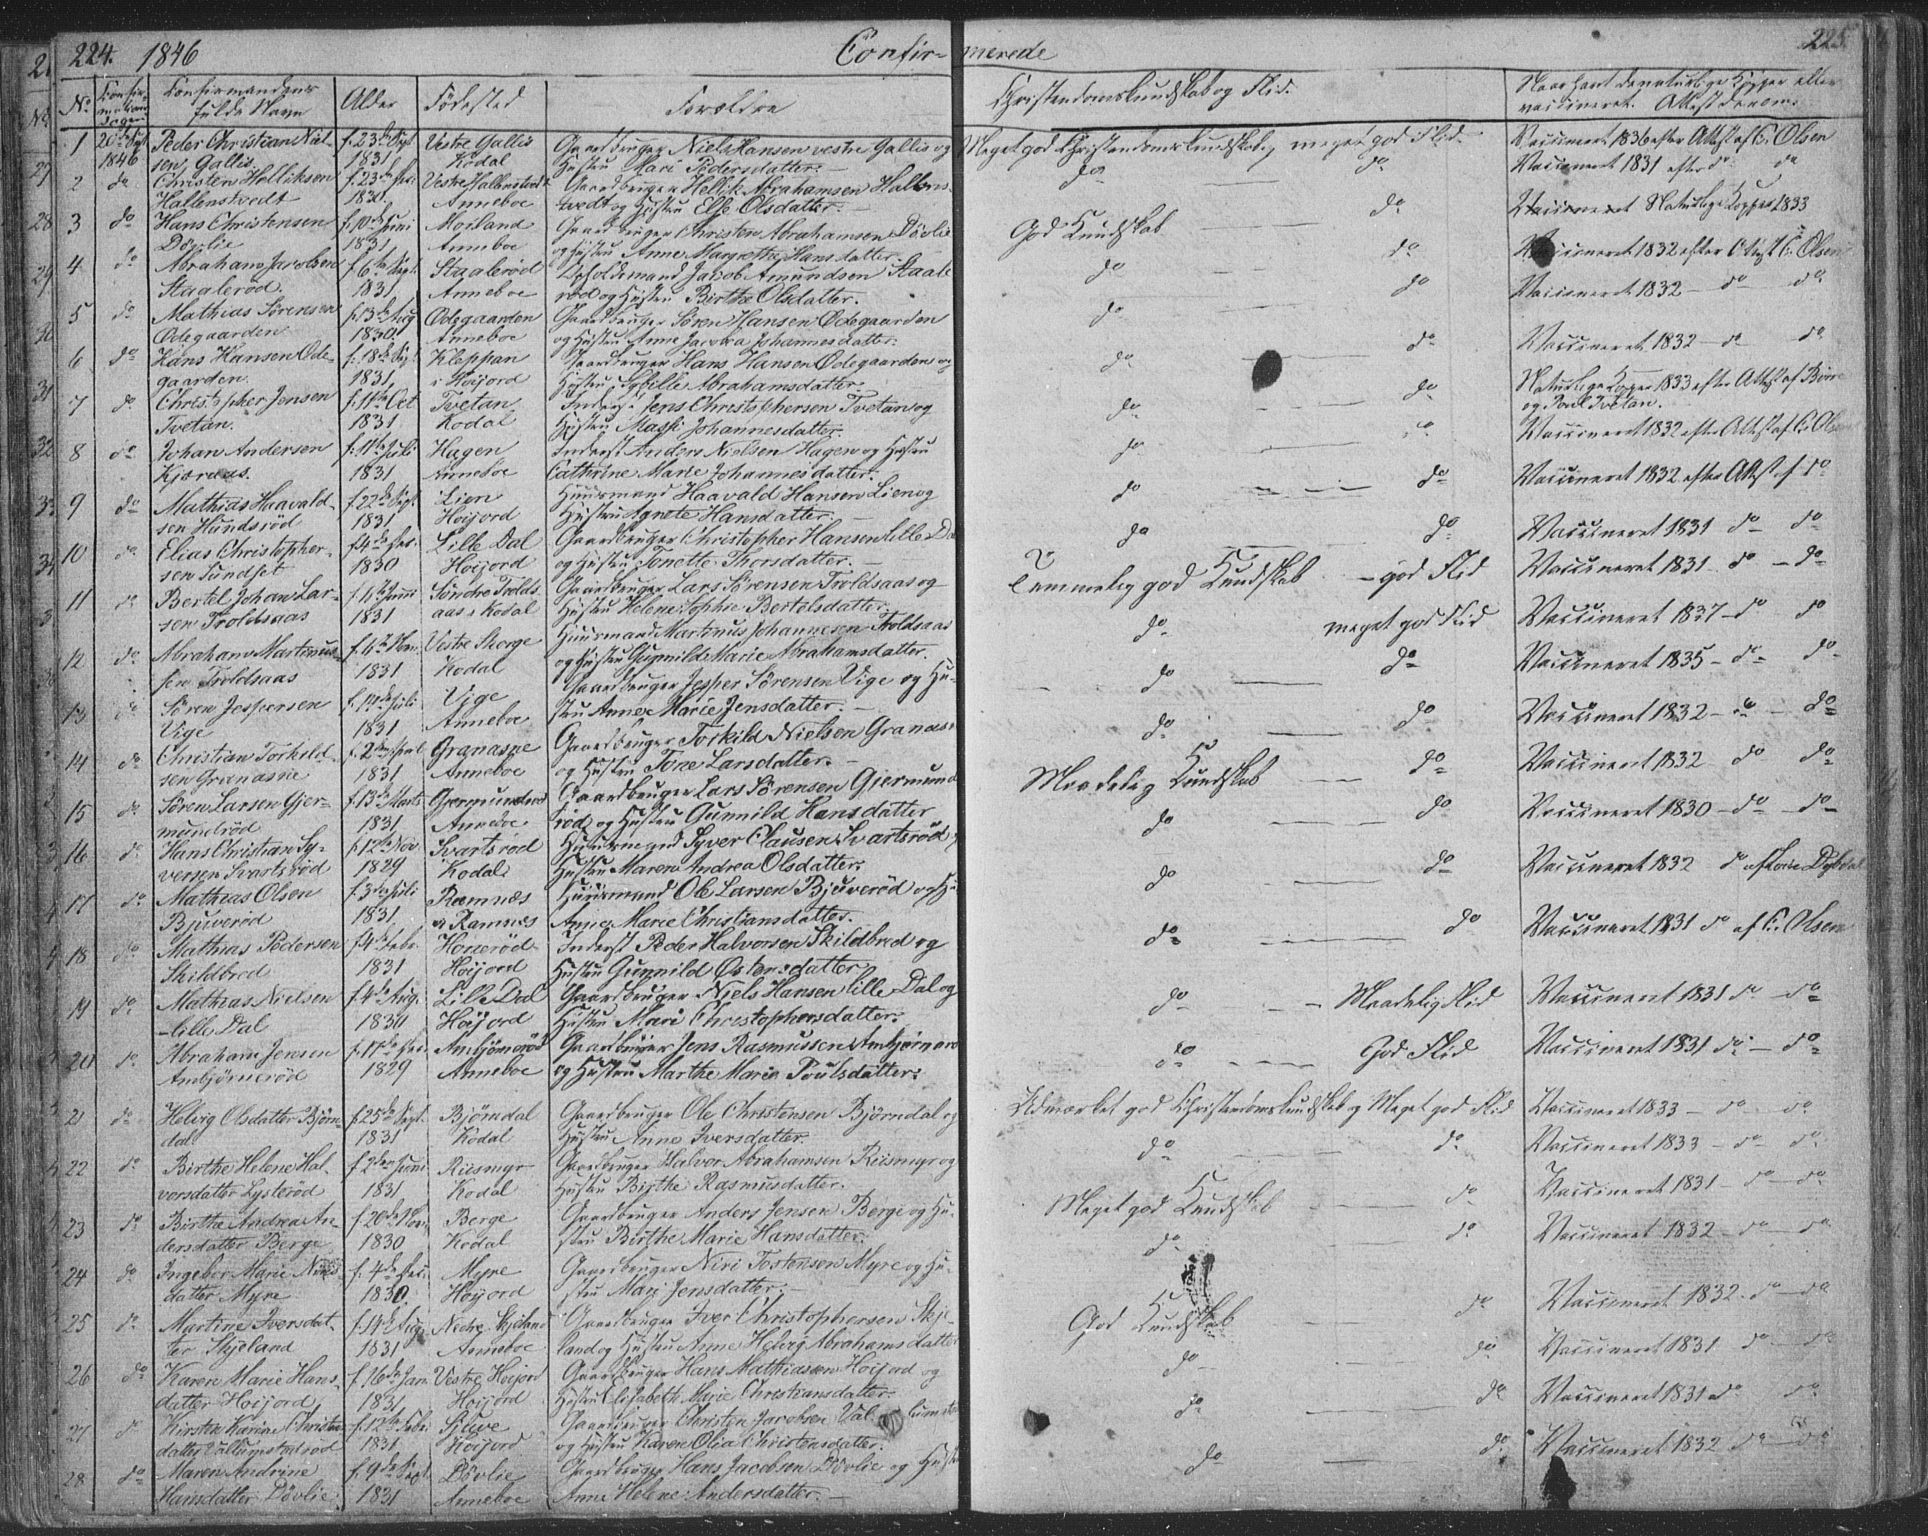 224. 1846 Confir- merede 225
No Confirmandens fulde Navn Alder Födested Forældre Christendomskundskab og Flid. Naar havt de naturlige Kopper eller vaccineret. Attest derom.
1 20de Sept 1846 Peder Christian Niel- f. 23de Sept Vestre Gallis Gaardbruger Niels Hansen vestre Gallis og Meget god Christendomskundskab, meget god Flid. Vaccineret 1836 efter Attest af C. Olsen
sen Gallis 1831 Kodal Hustru Mari Pedersdatter.
2 do Christen Helliksen f. 23de Vestre Gaardbruger Hellik Abrahamsen Hallens- do do Vaccineret 1831 efter do do
Hallenstvedt 1830 Anneboe tvedt og Hustru Else Olsdatter.
3 do Hans Christensen f. 10de Juni Moiland Gaardbruger Christen Abrahamsen Dövlie God Kundskab do Vaccineret Naturlige Kopper 1833
Dövlie 1831 Anneboe og Hustru Anne Margrethe Hansdatter.
4 do Abraham Jacobsen f. 6te Sept. Staalerød Opholdsmand Jacob Amundsen Staale do do Vaccineret 1832 efter Attest C. Olsen
Staalerød. 1831 Anneboe rød og Hustru Birthe Olsdatter.
5 do Mathias Sörensen f. 13de Aug Ödegaarden Gaardbruger Sören Hansen Ödegaarden do do Vaccineret 1832 do do
Ödegaarden 1830 Anneboe og Hustru Anne Jacoba Johannesdatter.
6 do Hans Hansen Öde- f. 18de Sept Kleppan Gaardbruger Hans Hansen Ödegaarden og do do Vaccineret 1832 do do
gaarden. 1831 i Hoijord Hustru Sybille Abrahamsdatter.
7 do Christopher Jensen f. 11te Oct Tvetan Inderst Jens Christophersen Tvetan og do do Naturlige Kopper 1833 efter Attest af Börre
Tvetan. 1831 Kodal Hustru Massi Johannesdatter. og Poul Tvetan.
8 do Johan Andersen f. 11te Juli Hagen Inderst Anders Nielsen Hagen og Hustru do do Vaccineret 1832 efter Attest af C. Olsen
Kjæraas. 1831 Anneboe Cathrine Marie Johannesdatter.
9 do Mathias Haavald- f. 22de Sept. Lien Huusmand Haavald Hansen Lien og do do Vaccineret 1832 efter Attest af do
sen Hundsrød 1831 Hoijord Hustru Agnete Hansdatter.
10 do Elias Christopher- f. 4de Lille Dal Gaardbruger Christopher Hansen lille Da do do Vaccineret 1831 do do
sen Sundset 1830 Hoijord og Hustru Tonette Thorsdatter.
11 do Bertel Johan Lar- f. 16de Juni Söndre Trolds Gaardbruger Lars Sörensen Troldsaas og Temmelig god Kundskab god Flid Vaccineret 1831 do do
sen Troldsaas 1831 aas i Kodal Hustru Helene Sophie Bertelsdatter.
12 do Abraham Martinus- f. 6te Vestre Skorge Huusmand Martinus Johannesen Troldsaas do meget god Flid Vaccineret 1837 do do
sen Troldsaas 1831 Kodal og Hustru Gunnild Marie Abrahamsdatter.
13 do Sören Jespersen f. 14de Juli Vige Gaardbruger Jesper Sörensen Vige og Hu- do do Vaccineret 1835 do do
Vige 1831 Anneboe stru Anne Marie Jensdatter.
14 do Christian Torkild- f. 2den April Granasne Gaardbruger Torkild Nielsen Granas do do Vaccineret 1832 do
sen Granasne 1831 Anneboe og Hustru Tone Larsdatter.
15 do Sören Larsen Gjer- f. 13de Marts Gjermundrød Gaardbruger Lars Sörensen Gjermund Maadelig Kundskab do Vaccineret 1832 do do
mundrød 1831 Anneboe rød og Hustru Gunnild Hansdatter
16 do Hans Christian Sy- f. 12te Nov Svartsrød Huusmand Syver Clausen Svartsrød do do Vaccineret 1830 do do
versen Svartsrød 1829 Kodal Hustru Maren Andrea Olsdatter.
17 do Mathias Olsen f. 3die Juli Ramnæs Huusmand Ole Larsen Bjuverød og Hu do do Vaccineret 1832 do
Bjuverød 1831 Ramnæs Anne Marie Christiansdatter.
18 do Mathias Pedersen f. 4de Febr. Honerød Inderst Peder Halvorsen Skildbred og do do Vaccineret 1831 do af C. Olsen
Skildbred 1831 Hoijord Hustru Gunnild Östersdatter
19 do Mathias Nielsen f. 4de Aug. Lille Dal Gaardbruger Niels Hansen lille Dal og do Maadelig Flid Vaccineret 1831 do do
lille Dal 1830 Hoijord Hustru Mari Christophersdatter.
20 do Abraham Jensen f. 17de Ambjörnrød Gaardbruger Jens Rasmussen Ambjörnrø do God Flid Vaccineret 1831 do do
Ambjörnrød 1829 Anneboe og Hustru Marthe Maria Poulsdatter.
21 do Helvig Olsdatter Björn- f. 25de Sept. Björndal Gaardbruger Ole Christensen Björndal og Udmærket god Christendomskundskab og Meget god Flid Vaccineret 1833 do do
dal 1831 Kodal Hustru Anne Iversdatter.
22 do Birthe Helene Hal- f. 2den Juni Riismyr Gaardbruger Halvor Abrahamsen Riismyr og do do Vaccineret 1833 do do
vorsdatter Lysterød 1831 Kodal Hustru Birthe Rasmusdatter.
23 do Birthe Andrea An- f. 20de Nov. Berge Gaardbruger Anders Jensen Berge og Hu- Meget god Kundskab do Vaccineret 1831 do do
dersdatter Berge 1830 Kodal stru Birthe Marie Hansdatter.
24 do Ingeber Marie f. 4de Myre Gaardbruger Niri Tostensen Myre og Hu- do do Vaccineret 1832 do do
datter Myre 1830 Hoijord stru Mari Jensdatter.
25 do Martine Iversdat- f. 14de Aug. Nedre Skjeland Gaardbruger Iver Christophersen Skje- God Kundskab do Vaccineret 1832 do do
ter Skjeland 1831 Anneboe land og Hustru Anne Helvig Abrahamsdatter
26 do Karen Marie Hans- f. 16de Jan. Vestre Hoijord Gaardbruger Hans Mathiasen Hoijord og do do Vaccineret 1831 do do
datter Hoijord 1831 Hoijord Hustru Elisabeth Marie Christiansdatter.
27 do Kirsten Karine Christen f. 12te Febr. Gaardbruger Christen Jacobsen Val lumst do do Vaccineret 1831 do do
datter 1831 Hoijord og Hustru Karen Olia Christensdatter.
28 do Maren Andrine f. 9de Sept. Dövlie Gaardbruger Hans Jacobsen Dövlie og Hust do do Vaccineret 1832 do do
Hansdatter Dövlie 1831 Anneboe Anne Helene Andersdatter.